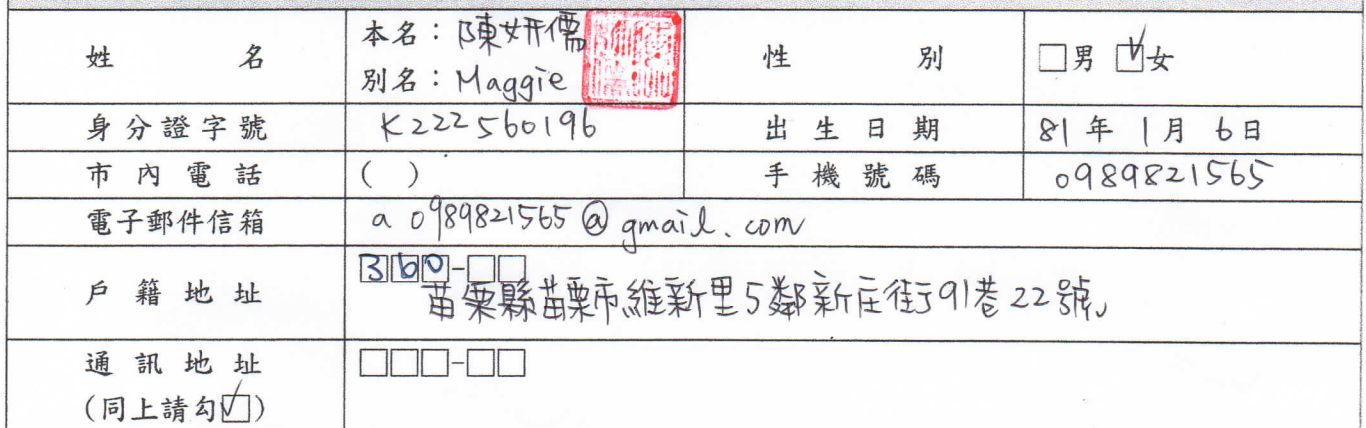 姓名 本名：陳妍儒 性別 □男 ☑女
別名：Maggie
身分證字號 K222560196 出生日期 81年1月6日
市內電話 ( ) 手機號碼 0989821565
電子郵件信箱 a0989821565@gmail.com
360-□□
戶籍地址 苗栗縣苗栗市維新里5鄰新庄街91巷22號
通訊地址 □□□-□□
(同上請勾☑)